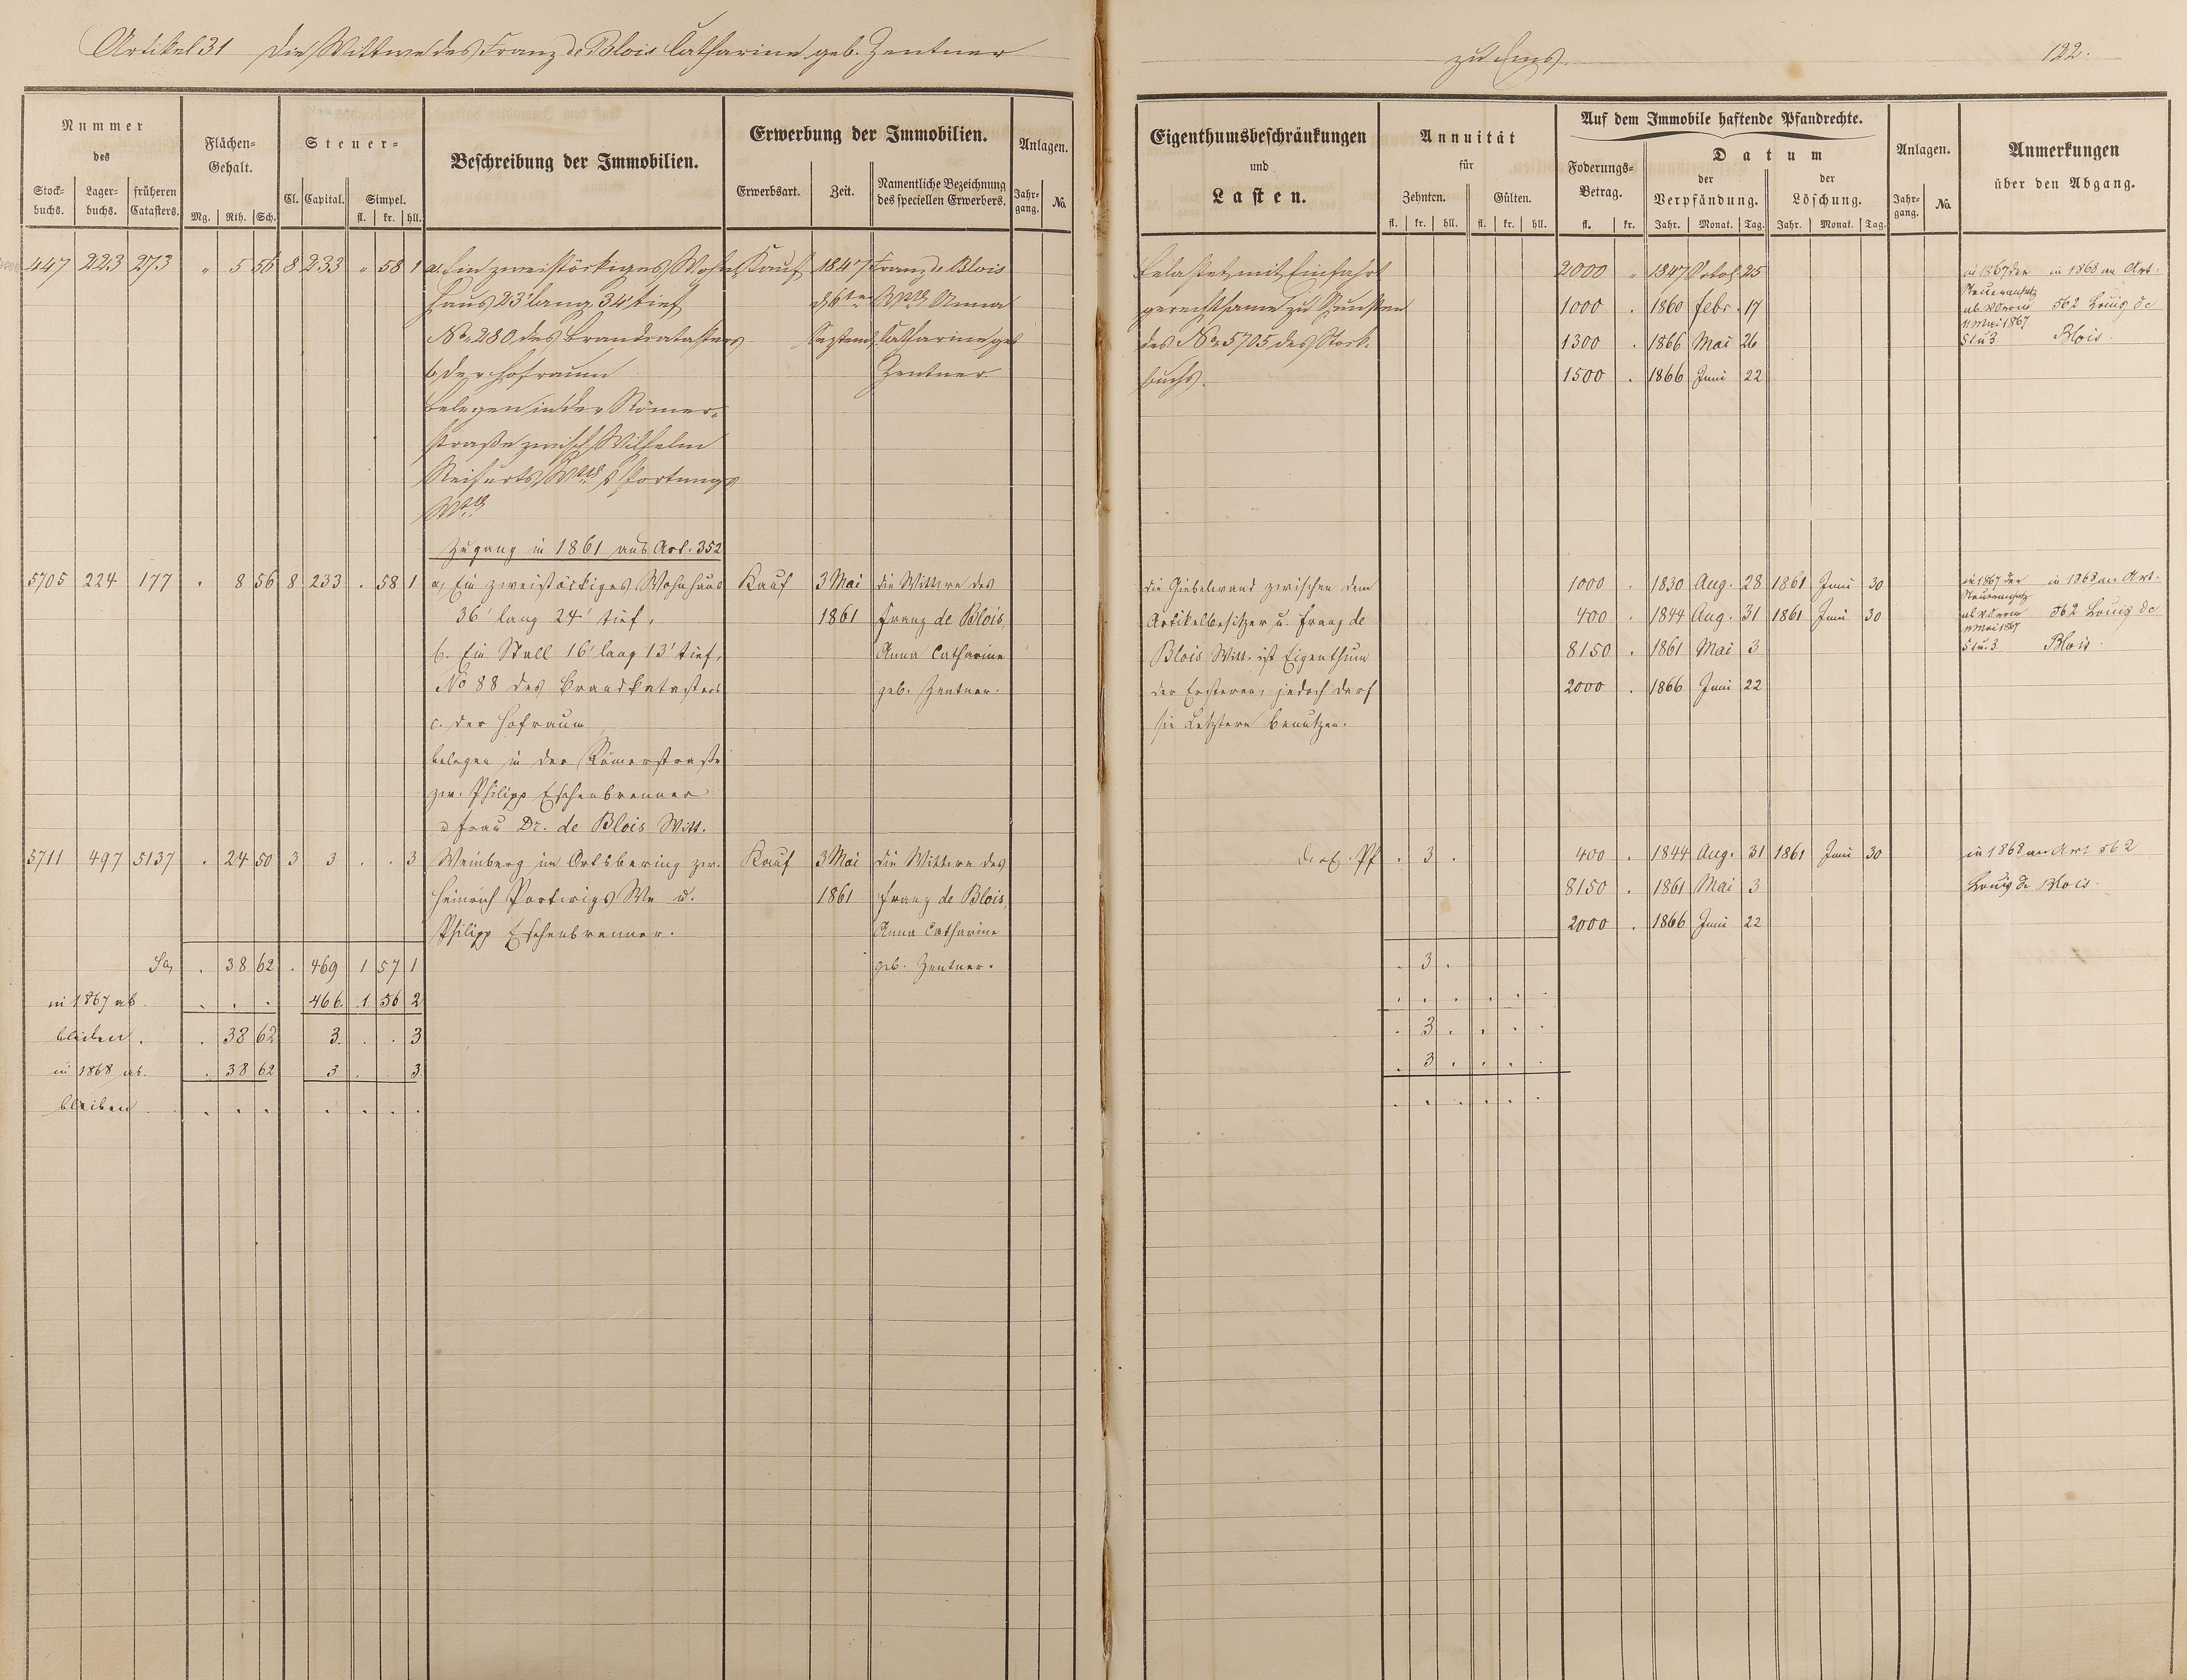 Artikel 31 Die Wittwe des Franz de Blois Catharine geb. Zentner
zu Ems.
122.
Nummer
des
Stock-
buchs.
Lager-
buchs.
früheren
Catasters.
Flächen-
Gehalt.
Mg. Rth. Sch.
Steuer-
Cl. Capital. Simpel.
fl. kr. hll.
Beschreibung der Immobilien.
Erwerbung der Immobilien.
Erwerbsart. Zeit. Namentliche Bezeichnung
des speciellen Erwerbers.
Anlagen.
Jahr-
gang. No.
Eigenthumsbeschränkungen
und
Lasten.
Annuität
für
Zehnten. Gülten.
fl. kr. hll. fl. kr. hll.
Auf dem Immobile haftende Pfandrechte.
Foderungs-
Betrag.
fl. kr.
Datum
der
Verpfändung.
Jahr. Monat. Tag.
der
Löschung.
Jahr. Monat. Tag.
Anlagen.
Jahr-
gang. No.
Anmerkungen
über den Abgang.
447 223 273 " 5 56 8 233 " 58 1 a, Ein zweistöckiges Wohn- Kauf 1847 Franz de Blois
haus 23' lang, 34' tief d 6ten Wtb Anna
No. 280 des Brandcatasters Septemb. Catharine geb
b, der Hofraum Zentner
belegen in der Römer-
straße zwisch Wilhelm
Wtb
Wtb
belastet mit Einfahrt
gerechtsame zu Gunsten
des No. 5705 des Stock-
buchs.
2000 " 1847 Octob 25
1000 . 1860 Febr. 17
1300 . 1866 Mai 26
1500 . 1866 Juni 22
in 1867 der
Steueransatz
ab.
11 Mai 1867
§ 1 u 3
in 1868 an Art.
562 Louis de
Blois.
Zugang in 1861 aus Art. 352
5705 224 177 . 8 56 8 233 . 58 1 a, Ein zweistöckiges Wohnhaus Kauf 3 Mai die Wittwe des
36' lang 24' tief, 1861 Franz de Blois,
b. Ein Stall 16' lang 13' tief, Anna Catharine
No 88 des Brandkatasters geb. Zentner.
c. der Hofraum
belegen in der Römerstraße
zw. Philipp Eschenbrenner
u Frau Dr. de Blois Witt.
die Giebelwand zwischen dem
Artikelbesitzer u. Franz de
Blois Witt. ist Eigenthum
der Ersteren, jedoch darf
sie Letztere benutzen.
1000 . 1830 Aug. 28 1861 Juni 30
400 . 1844 Aug. 31 1861 Juni 30
8150 . 1861 Mai 3
2000 . 1866 Juni 22
in 1867 der
Steueransatz
ab
11 Mai 1867
§ 1 u. 3
in 1868 an Art.
562 Louis de
Blois.
5711 497 5137 . 24 50 3 3 . . 3 Weinberg im Ortsbering zw. Kauf 3 Mai die Wittwe des
Heinrich We u. 1861 Franz de Blois,
Philipp Eschenbrenner. Anna Catharine
geb. Zentner.
. 3 .
400 . 1844 Aug. 31 1861 Juni 30
8150 . 1861 Mai 3
2000 . 1866 Juni 22
in 1868 an Art 562
Louis de Blois.
Sa . 38 62 . 469 1 57 1
. 3 .
in 1867 ab . . . 466. 1 56 2
. . . . . .
bleiben . . 38 62 3. . . 3
. 3 . . . .
in 1868 ab. . 38 62 3 . . 3
. 3 . . . .
bleiben . . . . . . . .
. . . . . .